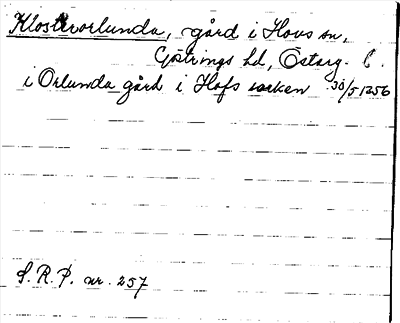 Klosterorlunda, gård i Hovs sn,
Göstrings hd, Östarg. C.
i Orlunda gård i Hofs socken 30/5 1256
S.R.P. nr. 257